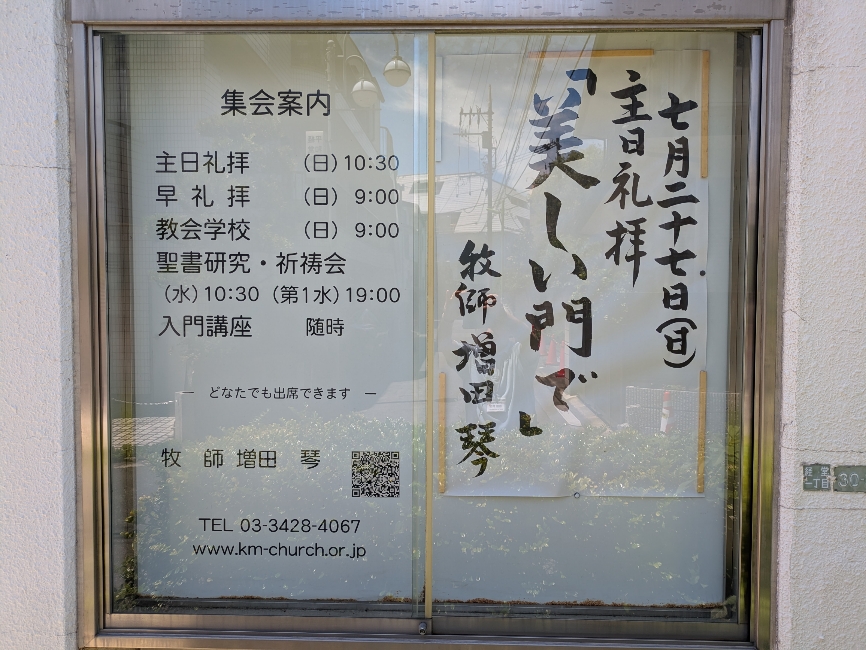 集会案内
主日礼拝 （日）10:30
早 礼 拝 （日） 9:00
教会学校 （日） 9:00
聖書研究・祈祷会
（水）10:30（第1水）19:00
入門講座 随時
― どなたでも出席できます ―
牧 師 増田 琴
TEL 03-3428-4067
www.km-church.or.jp
七月二十七日(日)
主日礼拝
「美しい門で」
牧師 増田 琴
経堂
一丁目
30